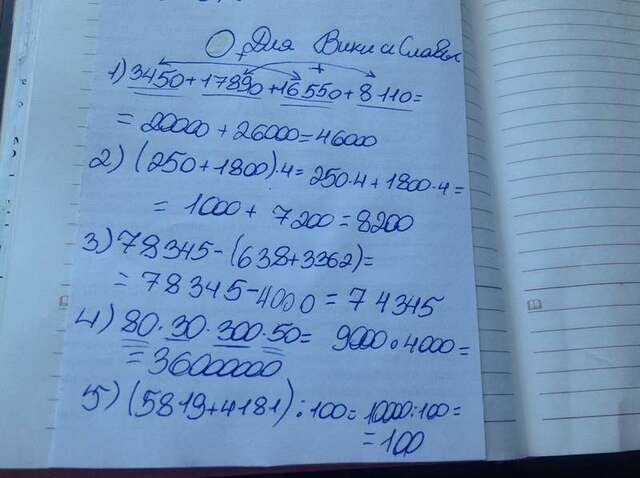 О, Для Вики и Славы
1) 3450 + 17890 + 16550 + 8110 =
= 20000 + 26000 = 46000
2) (250 + 1800) · 4 = 250 · 4 + 1800 · 4 =
= 1000 + 7200 = 8200
3) 78345 - (638 + 3362) =
= 78345 - 4000 = 74345
4) 80 · 30 · 300 · 50 = 9000 · 4000 =
= 3600000
5) (5819 + 4181) : 100 = 1000 : 100 =
= 100